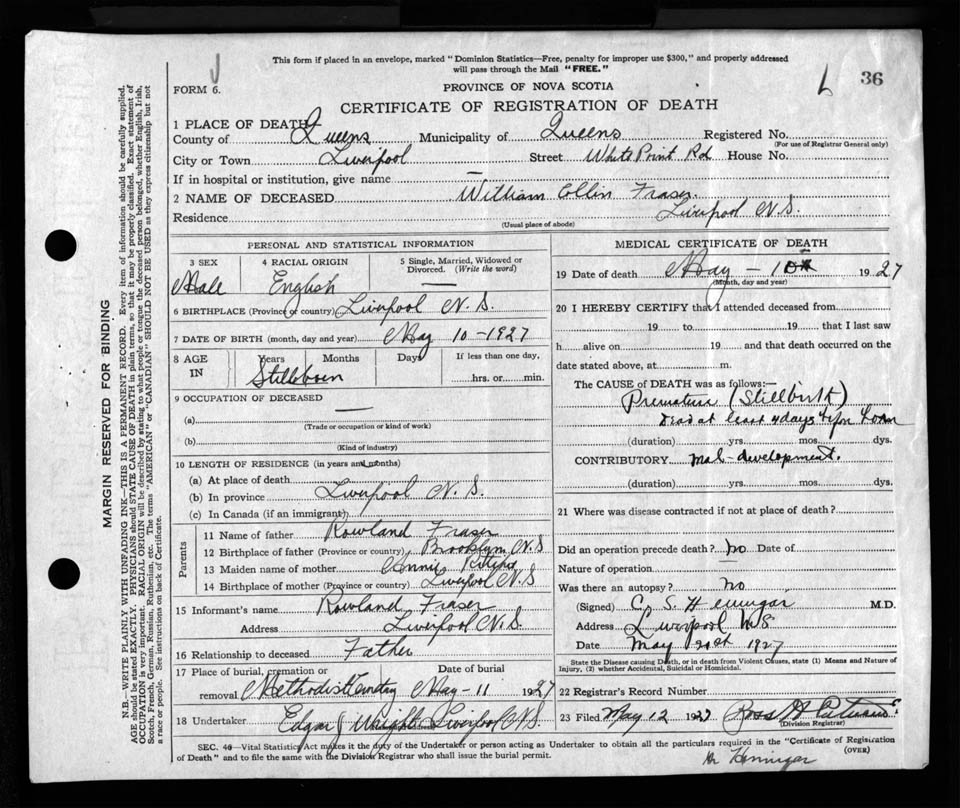 This form if placed in an envelope, marked "Dominion Statistics—Free, penalty for improper use $300," and properly addressed
will pass through the Mail "FREE."
36
FORM 6.
PROVINCE OF NOVA SCOTIA
CERTIFICATE OF REGISTRATION OF DEATH
1 PLACE OF DEATH
County of Queens Municipality of Queens Registered No.
(For use of Registrar General only)
City or Town Liverpool Street White Point Rd House No.
If in hospital or institution, give name —
2 NAME OF DECEASED William Ellin Fraser.
Residence Liverpool N.S.
(Usual place of abode)
PERSONAL AND STATISTICAL INFORMATION
3 SEX 4 RACIAL ORIGIN 5 Single, Married, Widowed or Divorced. (Write the word)
Male English —
6 BIRTHPLACE (Province or country) Liverpool N.S.
7 DATE OF BIRTH (month, day and year) May 10-1927
8 AGE IN Years Months Days If less than one day,
Stillborn hrs. or min.
9 OCCUPATION OF DECEASED
(a) —
(Trade or occupation or kind of work)
(b)
(Kind of industry)
10 LENGTH OF RESIDENCE (in years and months)
(a) At place of death
(b) In province Liverpool N.S.
(c) In Canada (if an immigrant)
Parents
11 Name of father Rowland Fraser
12 Birthplace of father (Province or country) Brooklyn N.S
13 Maiden name of mother Annie
14 Birthplace of mother (Province or country) Liverpool N.S
15 Informant's name Rowland Fraser
Address Liverpool N.S.
16 Relationship to deceased Father
17 Place of burial, cremation or Date of burial
removal Methodist Cemetery May-11 1927
18 Undertaker Edgar J Wright Liverpool N.S.
MEDICAL CERTIFICATE OF DEATH
19 Date of death May - 10 1927
(Month, day and year)
20 I HEREBY CERTIFY that I attended deceased from
19 to 19 that I last saw
h alive on 19 and that death occurred on the
date stated above, at m.
The CAUSE OF DEATH was as follows:—
Premature (Stillbirth)
Dead at least 4 days before born
(duration) yrs. mos. dys.
CONTRIBUTORY Mal-development.
(duration) yrs. mos. dys.
21 Where was disease contracted if not at place of death?
Did an operation precede death? no Date of
Nature of operation
Was there an autopsy? no
(Signed) C. S. Hennigar M.D.
Address Liverpool N.S.
Date May 1927
State the Disease causing Death, or in death from Violent Causes, state (1) Means and Nature of
Injury, (2) whether Accidental, Suicidal or Homicidal.
22 Registrar's Record Number
23 Filed May 12 1927 Ross
(Division Registrar)
SEC. 46—Vital Statistics Act makes it the duty of the Undertaker or person acting as Undertaker to obtain all the particulars required in the "Certificate of Registration
of Death" and to file the same with the Division Registrar who shall issue the burial permit.
(OVER)
Dr Hennigar
MARGIN RESERVED FOR BINDING
N.B.—WRITE PLAINLY WITH UNFADING INK—THIS IS A PERMANENT RECORD. Every item of information should be carefully supplied.
AGE should be stated EXACTLY. PHYSICIANS should STATE CAUSE OF DEATH in plain terms, so that it may be properly classified. Exact statement of
OCCUPATION is very important. RACIAL ORIGIN will be described by stating to what people or tongue the deceased person belonged, whether English, Irish,
Scotch, French, German, Russian, Ruthenian, etc. The terms "AMERICAN" or "CANADIAN" SHOULD NOT BE USED as they express citizenship but not
a race or people. See instructions on back of Certificate.